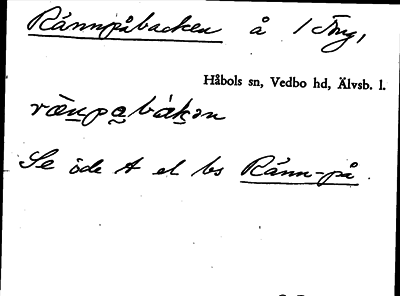 Rännpåbacken å 1 Äng,
Håbols sn, Vedbo hd, Älvsb. l.
rän̲pa̲bák̲ən
Se öde t el bs Ränn-på.